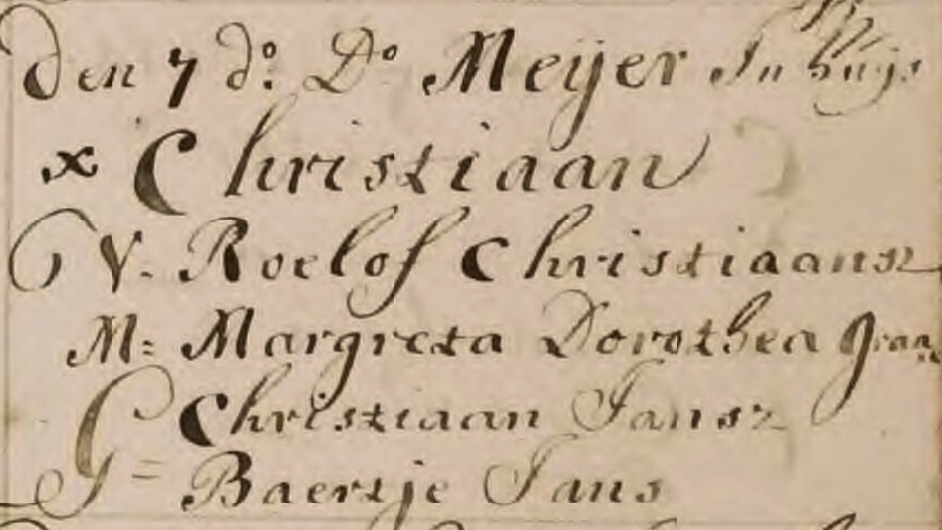 den 7 d.º Dº Meijer In huijs
x Christiaan
V. Roelof Christiaansz
M: Margreta Dorothea
Christiaan Jansz
G= Baertje Jans